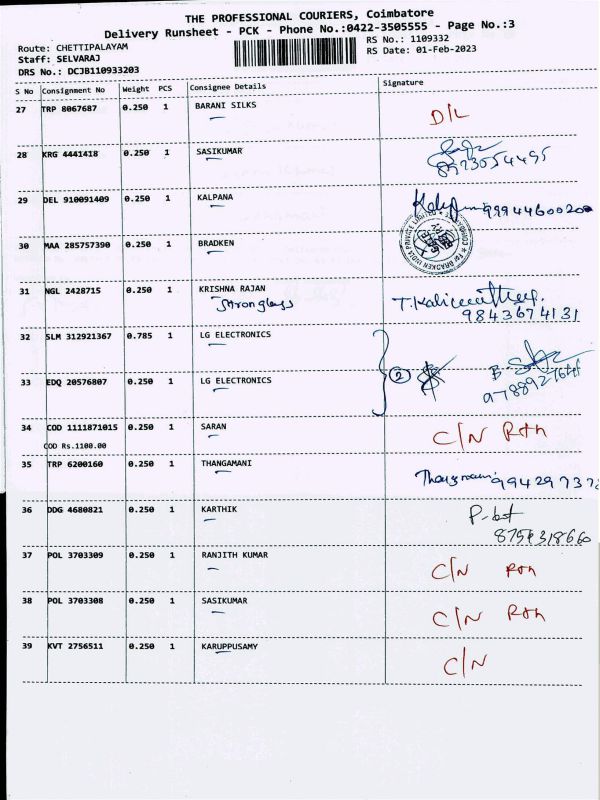 THE PROFESSIONAL COURIERS, Coimbatore
Delivery Runsheet - PCK - Phone No.:0422-3505555 - Page No.:3
Route: CHETTIPALAYAM
RS No.: 1109332
Staff: SELVARAJ
RS Date: 01-Feb-2023
DRS No.: DCJB110933203
S No Consignment No Weight PCS Consignee Details Signature
27 TRP 8067687 0.250 1 BARANI SILKS D/L
28 KRG 4441418 0.250 1 SASIKUMAR
8973054495
29 DEL 910091409 0.250 1 KALPANA
30 MAA 285757390 0.250 1 BRADKEN
31 NGL 2428715 0.250 1 KRISHNA RAJAN
Stronglass
9843674131
32 SLM 312921367 0.785 1 LG ELECTRONICS
2
33 EDQ 20576807 0.250 1 LG ELECTRONICS
34 COD 1111871015 0.250 1 SARAN C/N Rtn
COD Rs.1100.00
35 TRP 6200160 0.250 1 THANGAMANI
36 DDG 4680821 0.250 1 KARTHIK
37 POL 3703309 0.250 1 RANJITH KUMAR C/N Rtn
38 POL 3703308 0.250 1 SASIKUMAR C/N Rtn
39 KVT 2756511 0.250 1 KARUPPUSAMY C/N